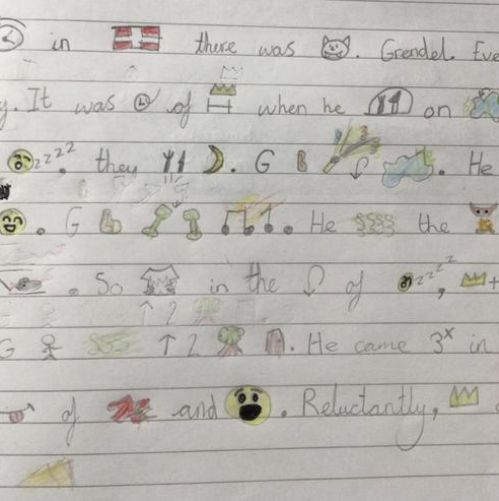 in there was . Grendel. Eve
y. It was of when he on
zzzz, they . G . He
. G . He the
. So in the of zzzz, +
G ↑ 2 . He came 3x in
of and . Reluctantly,